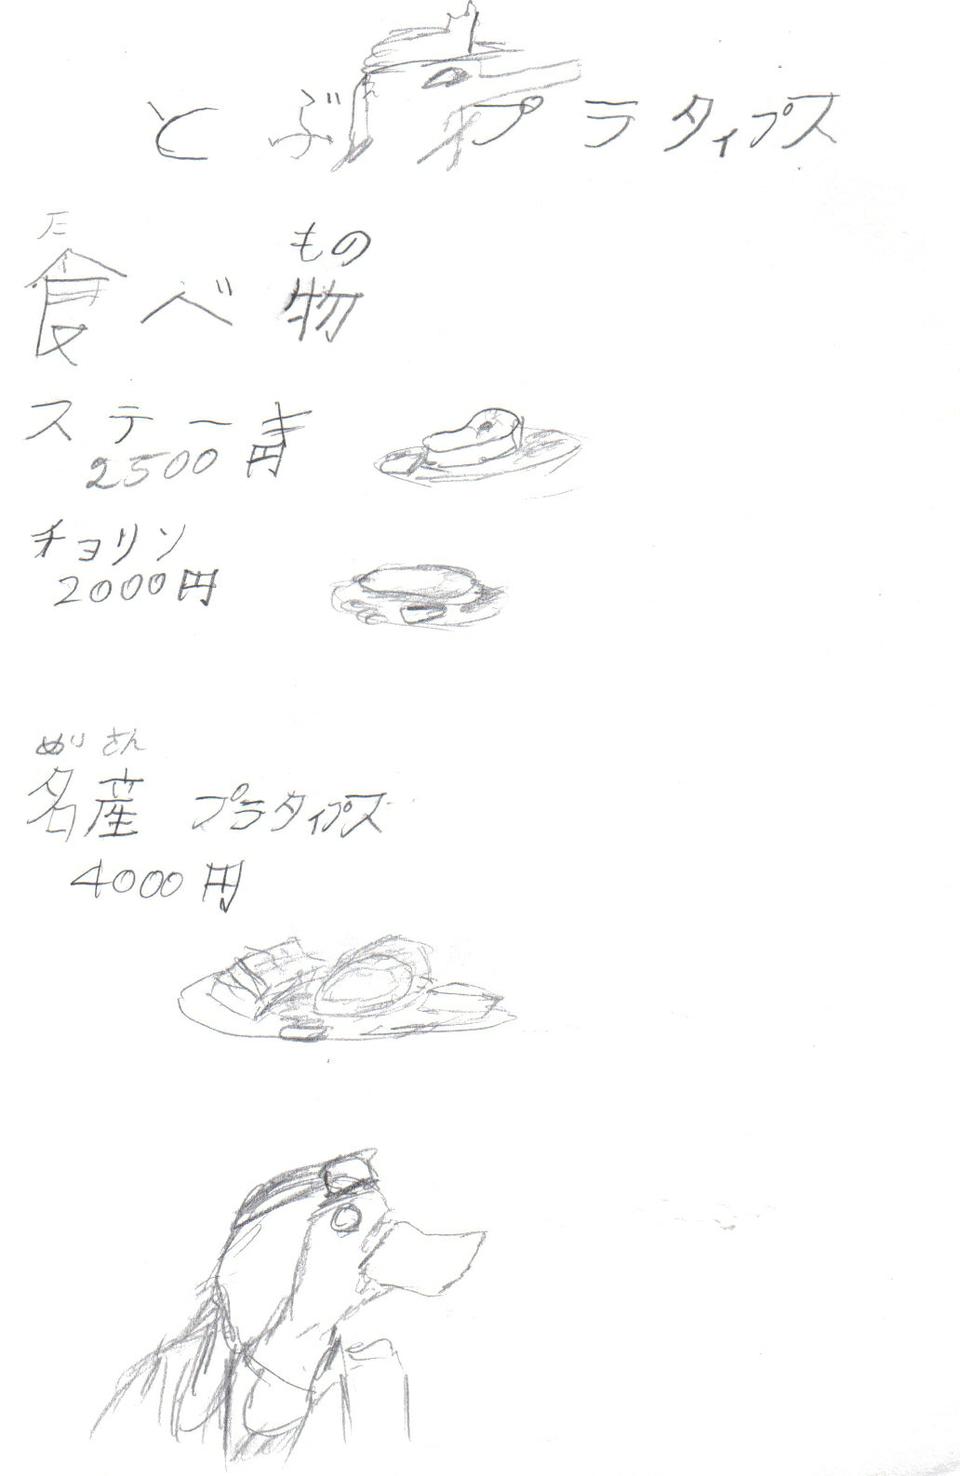 とぶ プラタイプス
た もの
食べ物
ステーキ
2500円
チョリソ
2000円
めいさん
名産 プラタイプス
4000円